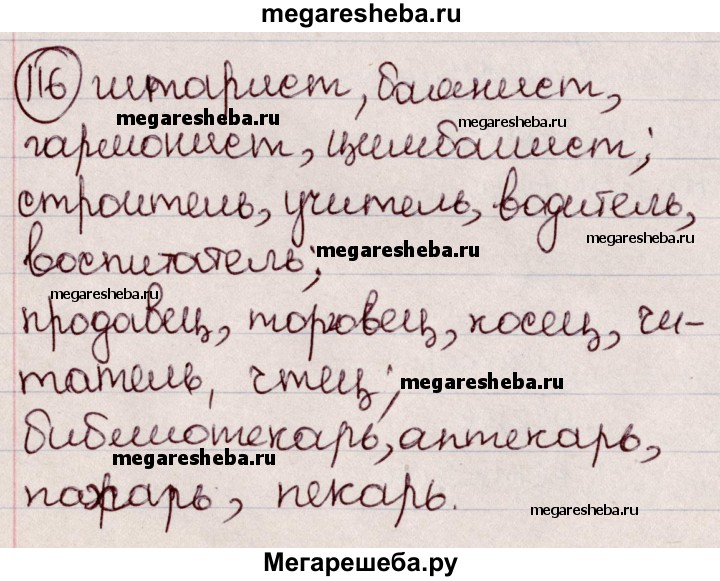 megaresheba.ru
116 гитарист, баянист,
megaresheba.ru megaresheba.ru
гармонист, цимбалист;
строитель, учитель, водитель,
megaresheba.ru
воспитатель;
megaresheba.ru
megaresheba.ru
продавец, торговец, косец, чи-
татель, чтец;
megaresheba.ru
библиотекарь, аптекарь,
megaresheba.ru
пахарь, пекарь.
megaresheba.ru
Мегарешеба.ру